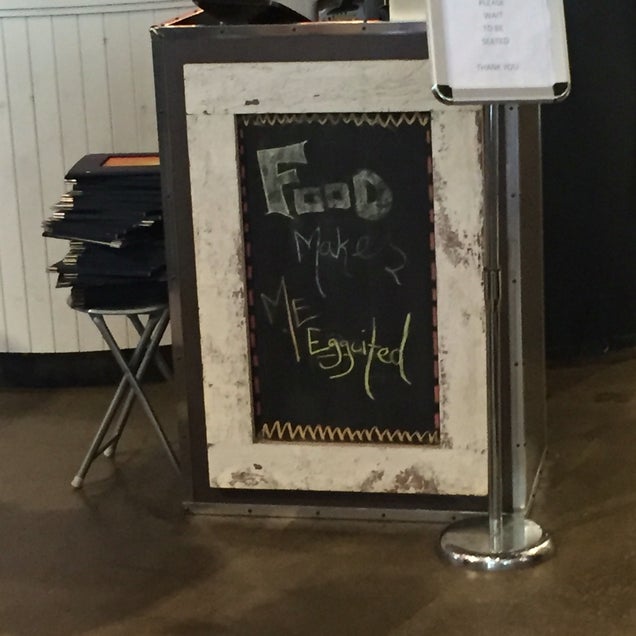 PLEASE
WAIT
TO BE
SEATED
THANK YOU
FooD
Makes
ME
Eggcited